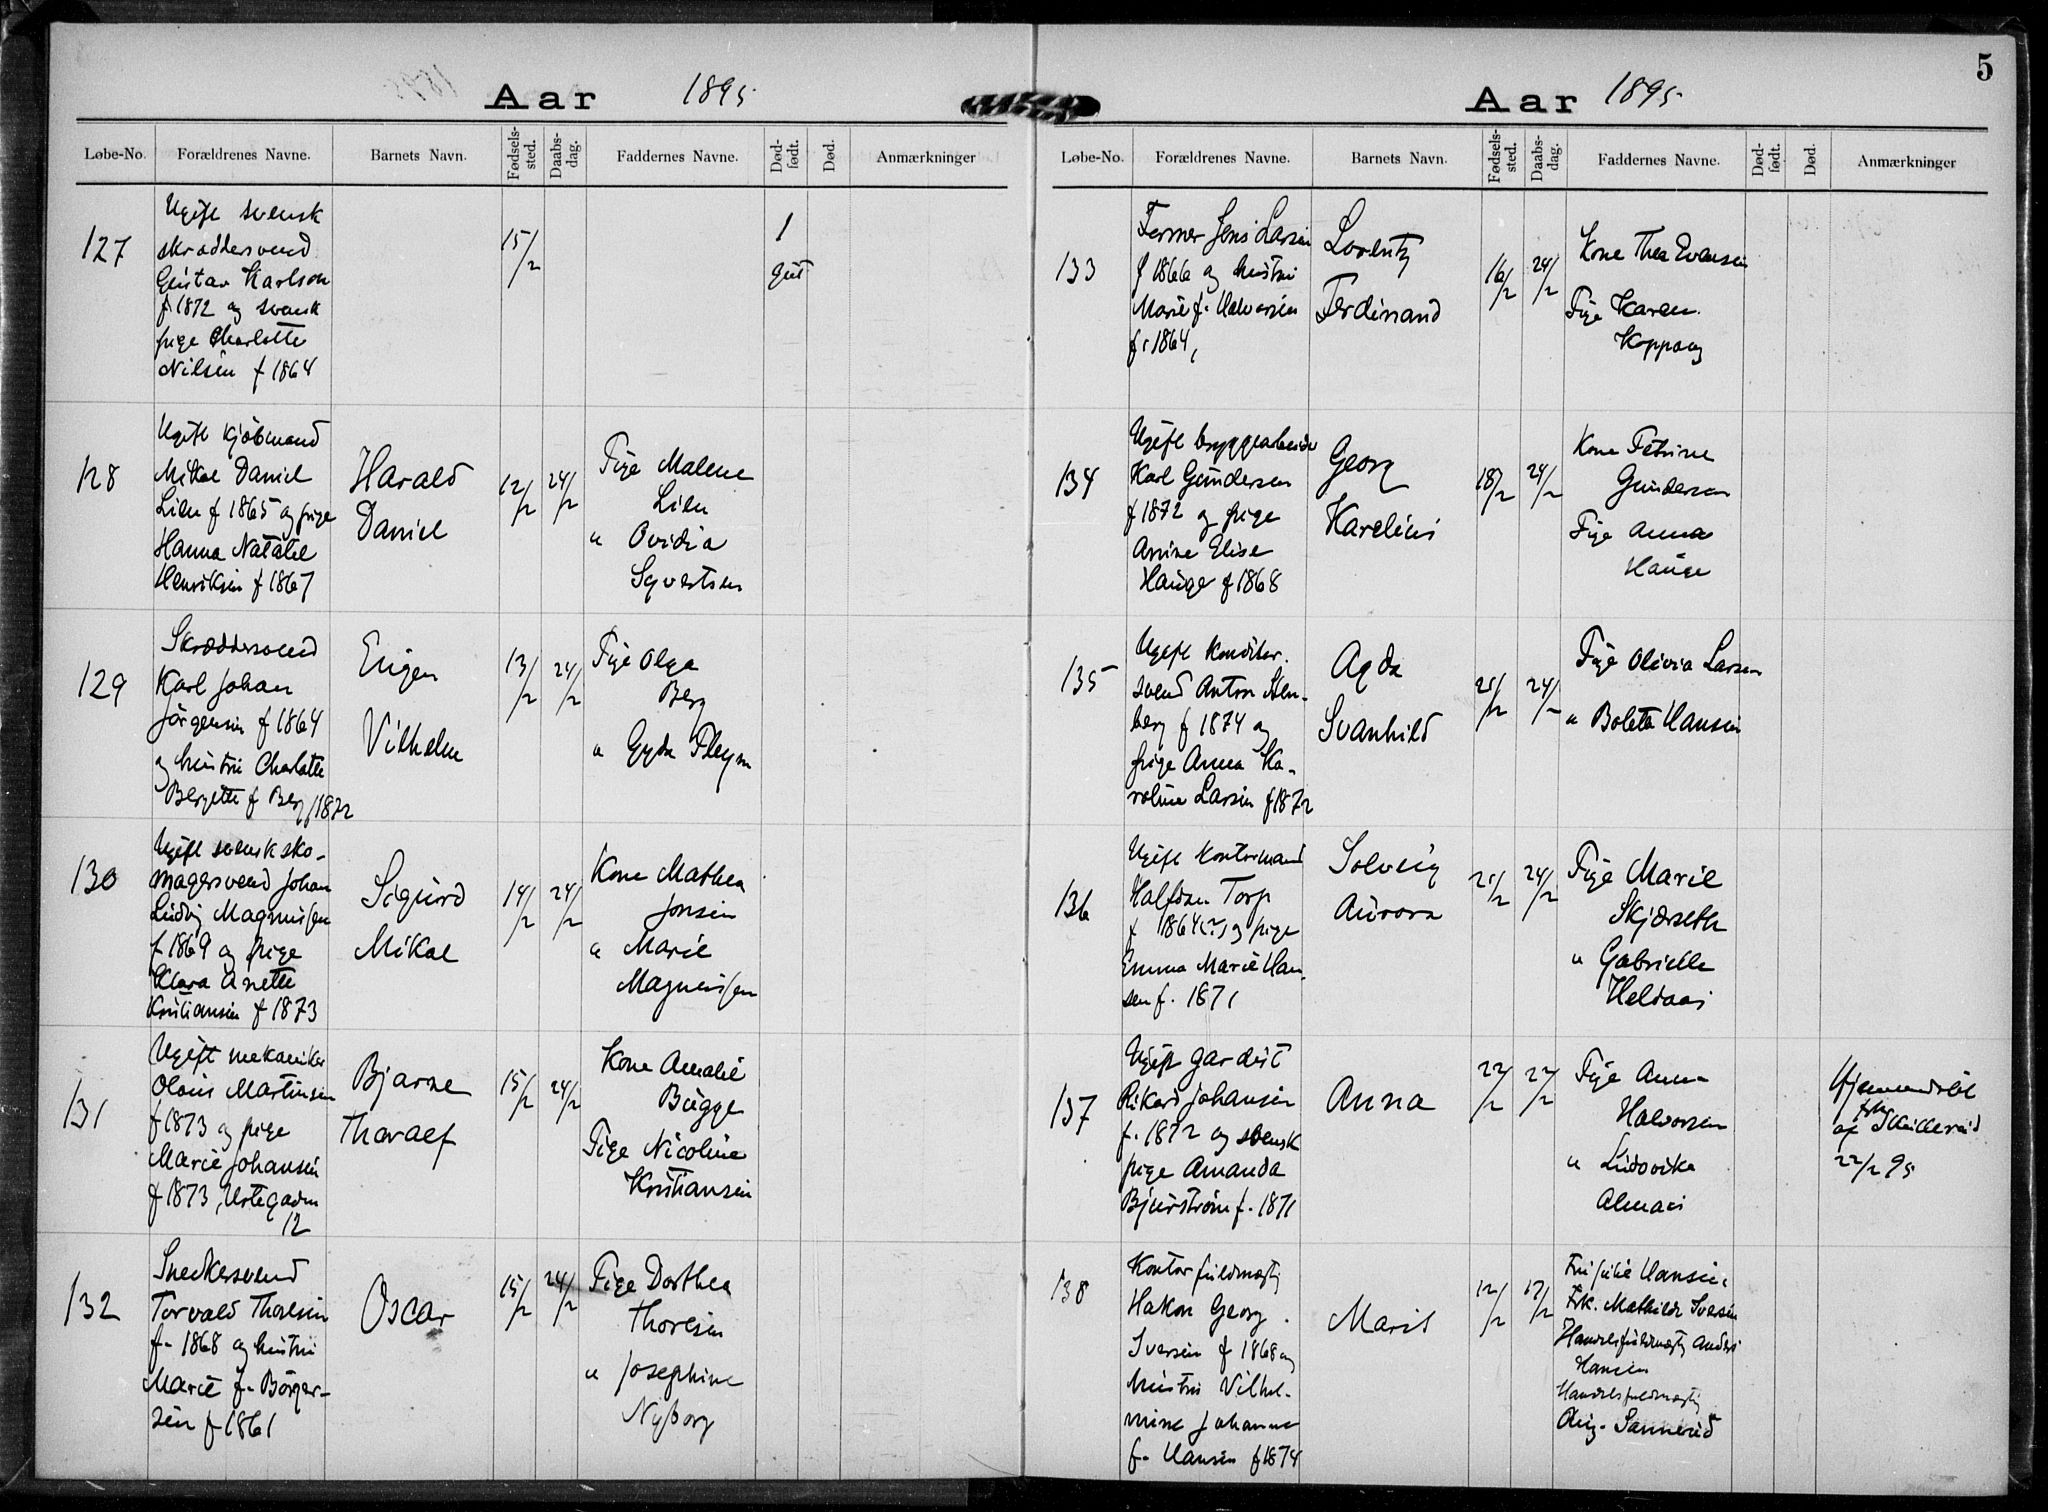 5
Aar 1895
Løbe-No. Forældrenes Navne. Barnets Navn. Fødsels-sted. Daabs-dag. Faddernes Navne. Død-født. Død. Anmærkninger
127
Ugift svensk
skræddersvend
Gustav Karlson
f. 1872 og svensk
pige Charlotte
Nilsen f 1864
15/2
1
gut
128
Ugift kjöbmand
Mikal Daniel
Lien f 1865 og pige
Hanna Natalie
Henriksen f 1867
Harald
Daniel
12/2
24/2
Pige Malene
Lien
" Ovidia
Syvertsen
129
Skræddersvend
Karl Johan
Jörgensen f 1864
og hustru Charlotte
Bergette f Berg f 1872
Eugen
Vilhelm
13/2
24/2
Pige Olga
Berg
" Gyda Pleym
130
Ugift svensk sko-
magersvend Johan
Ludvig Magnussen
f 1869 og pige
Klara Anette
Kristiansen f 1873
Sigurd
Mikal
14/2
24/2
Kone Mathea
Jonsen
" Marie
Magnussen
131
Ugift mekaniker
Olaus Martinsen
f 1873 og pige
Marie Johansen
f 1873, Urtegaden
12
Bjarne
Thoralf
15/2
24/2
Kone Amalie
Bugge
Pige Nicoline
Kristiansen
132
Snekkersvend
Torvald Thoresen
f. 1868 og hustru
Marie f. Börger-
sen f 1861
Oscar
15/2
24/2
Pige Dorthea
Thoresen
" Josephine
Nyborg
Aar 1895
Løbe-No. Forældrenes Navne. Barnets Navn. Fødsels-sted. Daabs-dag. Faddernes Navne. Død-født. Død. Anmærkninger
133
Former Jens Larsen
f 1866 og hustru
Marie f. Halvorsen
f. 1864,
Lorentz
Ferdinand
16/2
24/2
Kone Thea Evensen
Pige Karen
Koppang
134
Ugift bryggearbeider
Karl Gundersen
f 1872 og pige
Anine Elise
Hauge f 1868
Georg
Karelius
18/2
24/2
Kone Petrine
Gundersen
Pige Anna
Hauge
135
Ugift konditor-
svend Anton Sten-
berg f 1874 og
pige Anna Ka-
roline Larsen f 1872
Agda
Svanhild
21/2
24/2
Pige Olivia Larsen
" Bolette Hansen
136
Ugift kontormand
Halfdan Torp
f 1864(?) og pige
Emma Marie Han-
sen f. 1871
Solveig
Aurora
21/2
24/2
Pige Marie
Skjærseth
" Gabrielle
137
Ugift gardist
Rikard Johansen
f. 1872 og svensk
pige Amanda
Bjurström f. 1871
Anna
22/2
22/2
Pige Anna
Halvorsen
" Ludovika
Hjemmedöbt
af
22/2 95
138
Kontorfuldmægtig
Hakon Georg
Iversen f 1868 og
hustru Vilhel-
mine Johanne
f. Hansen f 1874
Marit
12/2
17/2
Fru Julie Hansen
Frk. Mathilde Iversen
Handelsfuldmægtig Anders
Hansen
Handelsfuldmægtig
Aug. Sannerud